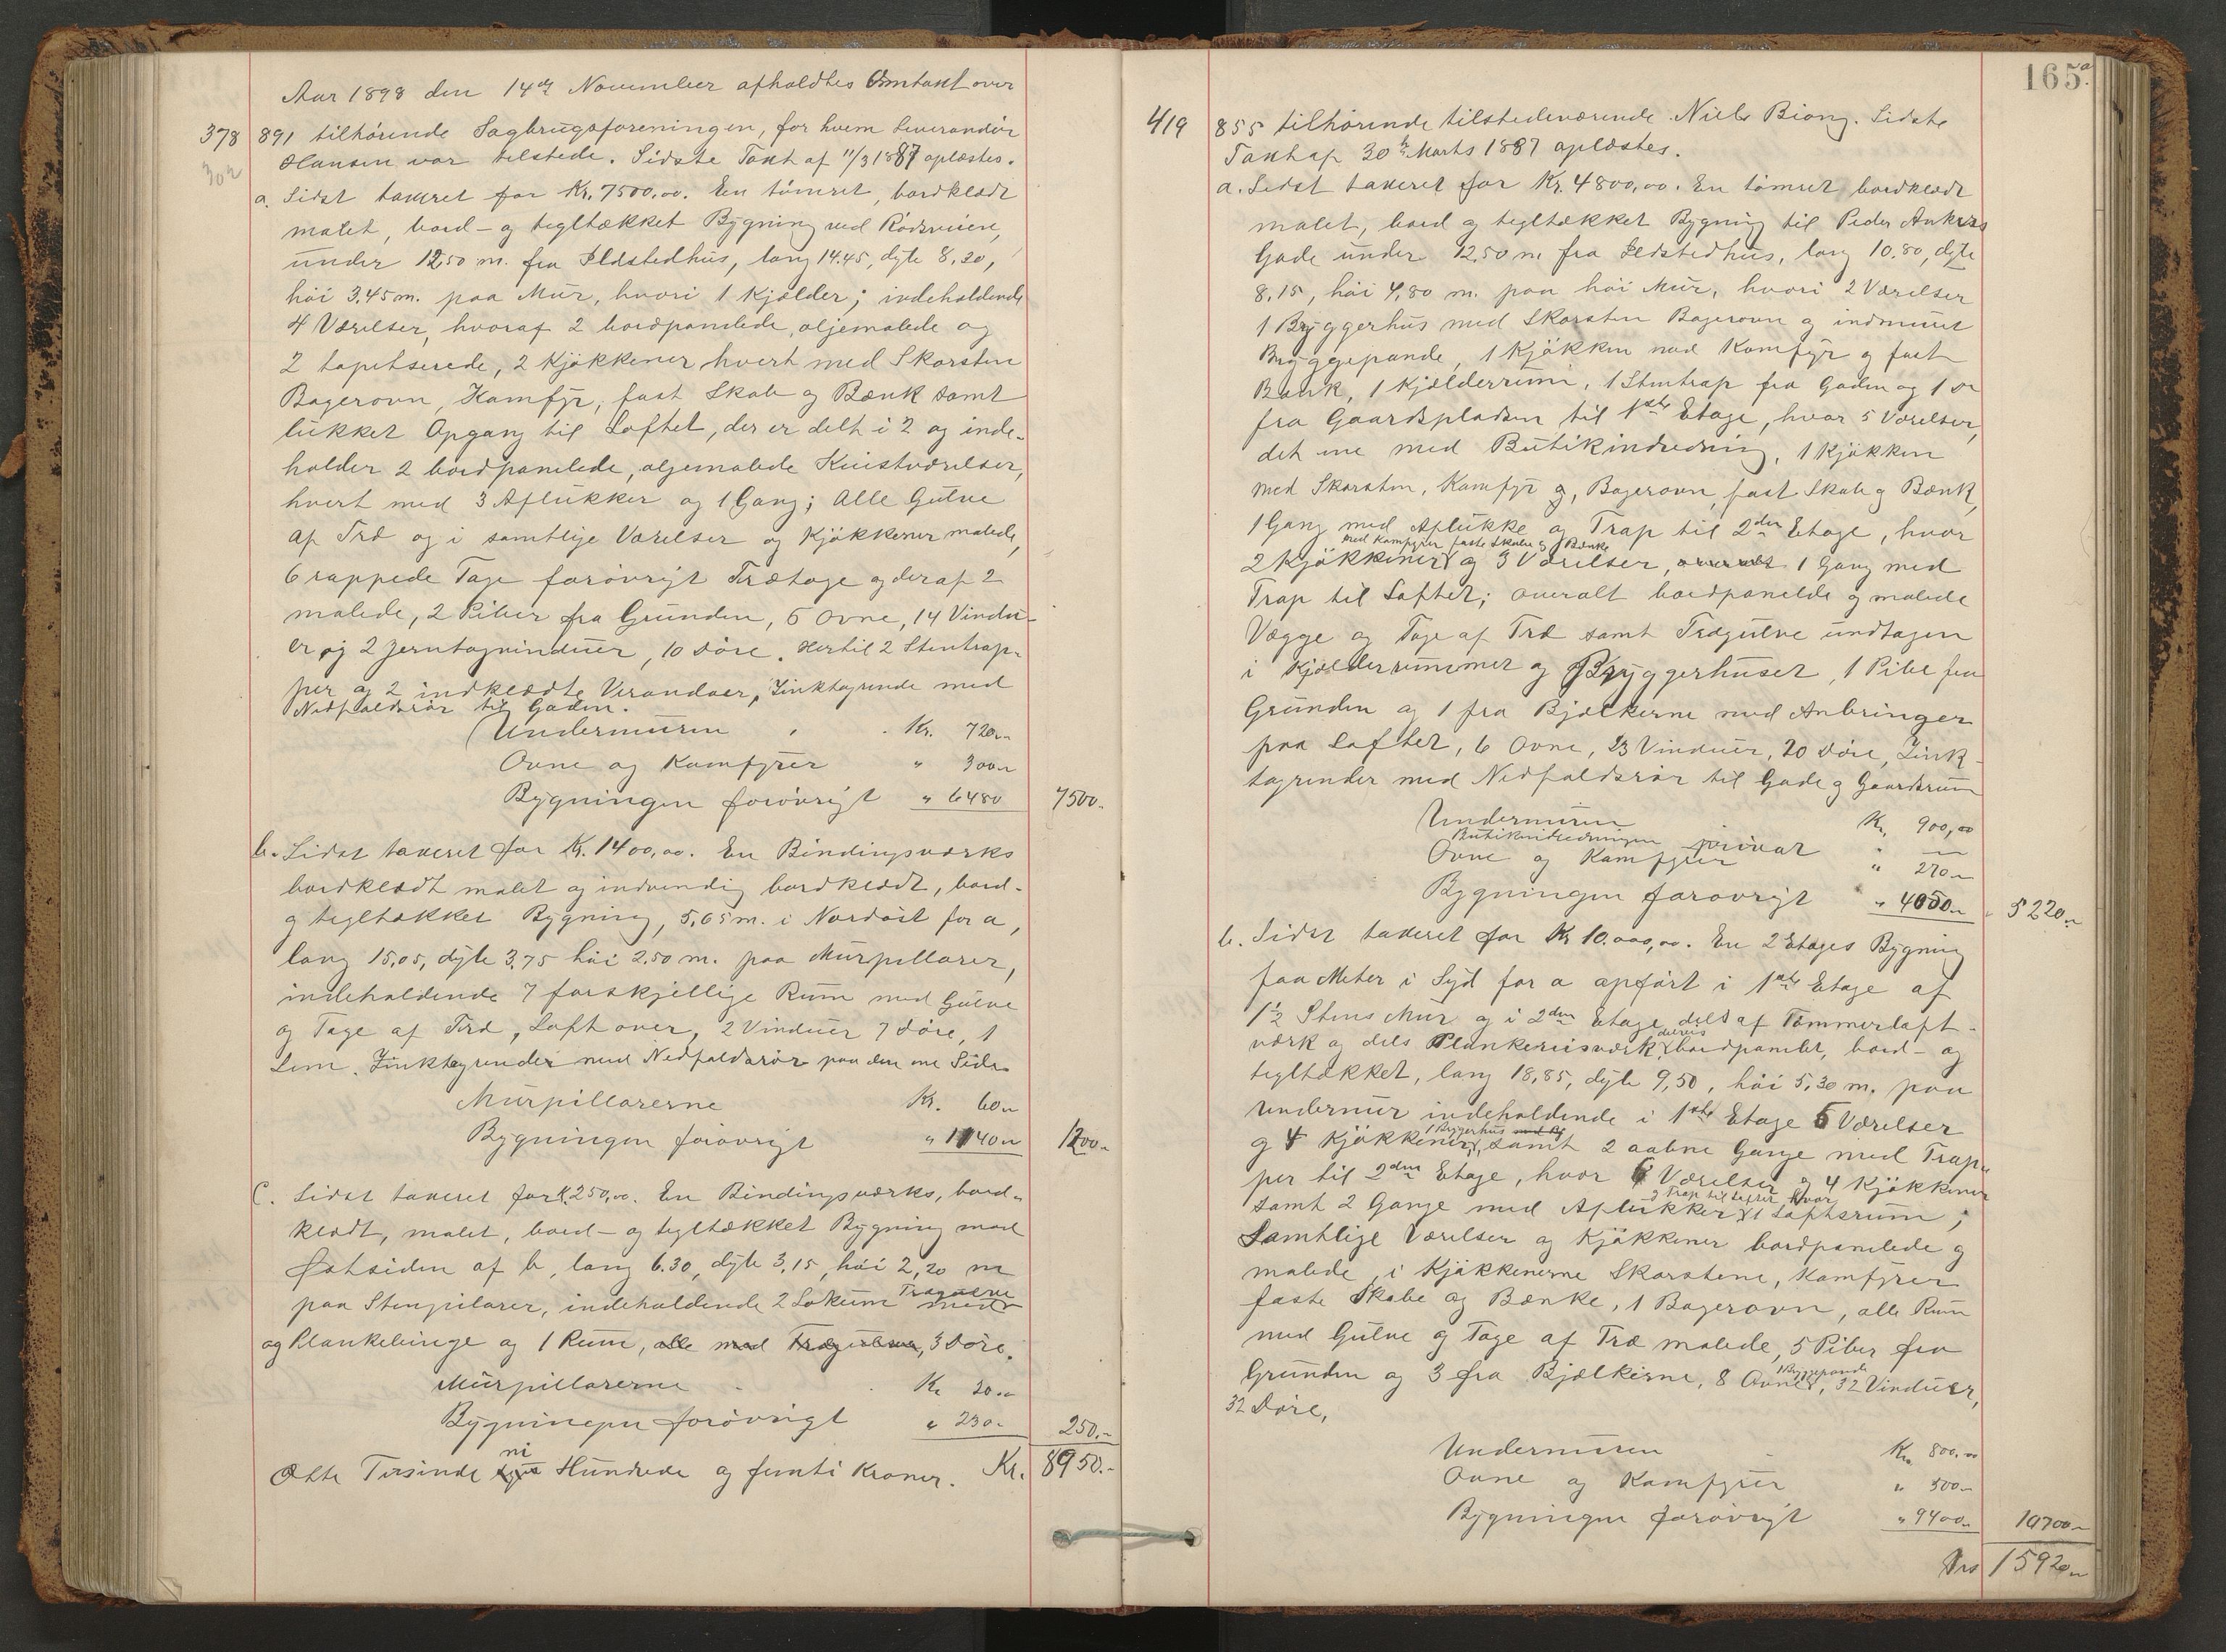 Aar 1898 den 14de November afholdtes Omtaxt over
378 891 tilhörende Sagbrugsforeningen, for hvem Leverandör
302
Hansen var tilstede. Sidste Taxt af 11/3 1887 oplæstes.
a. Sidst taxeret for Kr. 7500,00. En tömret, bordklædt
malet, bord- og tegltækket Bygning ved Rödsveien,
under 12,50 m. fra Ildstedhus, lang 14.45, dyb 8,20,
höi 3.45 m. paa Mur, hvori 1 Kjælder; indeholdende
4 Værelser, hvoraf 2 bordpanelede, oljemalede og
2 tapetserede, 2 Kjökkener hvert med Skorsten
Bagerovn, Komfyr, fast Skab og Bænk samt
lukket Opgang til Loftet, der er delt i 2 og inde-
holder 2 bordpanelede, oljemalede Kvistværelser,
hvert med 3 Aflukker og 1 Gang; Alle Gulve
af Træ og i samtlige Værelser og Kjökkener malede,
6 rappede Tage forövrigt Trætage og deraf 2
malede, 2 Piber fra Grunden, 5 Ovne, 14 Vindu-
er og 2 Jerntagvinduer, 10 Döre. Hertil 2 Stentrap-
per og 2 indklædte Verandaer, Zinktagrende med
Nedfaldsrör til Gaden.
Undermuren Kr. 720,-
Ovne og Komfyrer " 300,-
Bygningen forövrigt " 6480 7500.-
b. Sidst taxeret for Kr. 1400,00. En Bindingsværks
bordklædt malet og indvendig bordklædt, bord-
og tegltækket Bygning, 5,65 m. i Nordöst for a,
lang 15,05, dyb 3,75 höi 2.50 m. paa Murpillarer,
indeholdende 7 forskjellige Rum med Gulve
og Tage af Træ, Loft over, 2 Vinduer 7 Döre, 1
Lem. Zinktagrender med Nedfaldsrör paa den ene Side
Murpillarerne Kr. 60,-
Bygningen forövrigt " 1140,- 1200.-
C. Sidst taxeret for K. 250,00. En Bindingsværks, bord-
klædt, malet, bord- og tegltækket Bygning mod
Östsiden af b, lang 6.30, dyb 3,15, höi 2,20 m
paa Stenpilarer, indeholdende 2 Lokum Trægulve
og Plankebinge og 1 Rum, alle med Trægulve, 3 Döre.
Murpillarerne Kr 20.-
Bygningen forövrigt " 230.- 250.-
Otte Tusinde ni Hundrede og femti Kroner. Kr. 8950.-
165a.
419 855 tilhörende tilstedeværende Niels Biong. Sidste
Taxt af 30te Marts 1887 oplæstes.
a. Sidst taxeret for Kr. 4800,00. En tömret bordklædt
malet, bord og tegltækket Bygning til Peder Ankers
Gade under 12,50 m fra Ildstedhus, lang 10.80, dyb
8,15, höi 4,80 m. paa höi Mur, hvori 2 Værelser
1 Bryggerhus med Skorsten Bagerovn og indmuret
Bryggepande, 1 Kjökken med Komfyr og fast
Bænk, 1 Kjælderrum, 1 Stentrap fra Gaden og 1 Do
fra Gaardspladsen til 1ste Etage, hvor 5 Værelser,
det ene med Butikindredning, 1 Kjökken
med Skorsten, Komfyr og, Bagerovn, fast Skab og Bænk,
1 Gang med Aflukke og Trap til 2den Etage, hvor
med Komfyrer faste Skabe og Bænke
2 Kjökkener og 3 Værelser, overalt 1 Gang med
Trap til Loftet; overalt bordpanelde og malede
Vægge og Tage af Træ samt Trægulve undtagen
i Kjælderrummet og Bryggerhuset, 1 Pibe fra
Grunden og 1 fra Bjælkerne med Anbringer
paa Loftet, 6 Ovne, 23 Vinduer, 20 Döre, Zink-
tagrender med Nedfaldsrör til Gade og Gaardsrum
Undermuren Kr. 900,00
Butikindredningen privat " —
Ovne og Komfyrer " 270,-
Bygningen forövrigt " 4050,- 5220,-
b. Sidst taxeret for Kr 10.000,00. En 2 Etages Bygning
faa Meter i Syd for a opfört i 1ste Etage af
1½ Stens Mur og i 2den Etage dels af Tömmerlaft-
værk og dels Plankereisværk, delvis bordpanelet, bord- og
tegltækket, lang 18,85, dyb 9,50, höi 5,30 m. paa
Undermur indeholdende i 1ste Etage 6 Værelser
1 Bryggerhus
og 4 Kjökkener, samt 2 aabne Gange med Trap-
per til 2den Etage, hvor 6 Værelser og 4 Kjökkener
og Trap til Loftet hvor
samt 2 Gange med Aflukker 1 Loftsrum;
Samtlige Værelser og Kjökkener bordpanelede og
malede, i Kjökkenerne Skorstene, Komfyrer
faste Skabe og Bænke, 1 Bagerovn, alle Rum
med Gulve og Tage af Træ malede, 5 Piber fra
1 Bryggepande
Grunden og 3 fra Bjælkerne, 8 Ovne, 32 Vinduer,
32 Döre,
Undermuren Kr 800,00
Ovne og Komfyrer " 500,-
Bygningen forövrigt " 9400,- 10700,-
15920,-